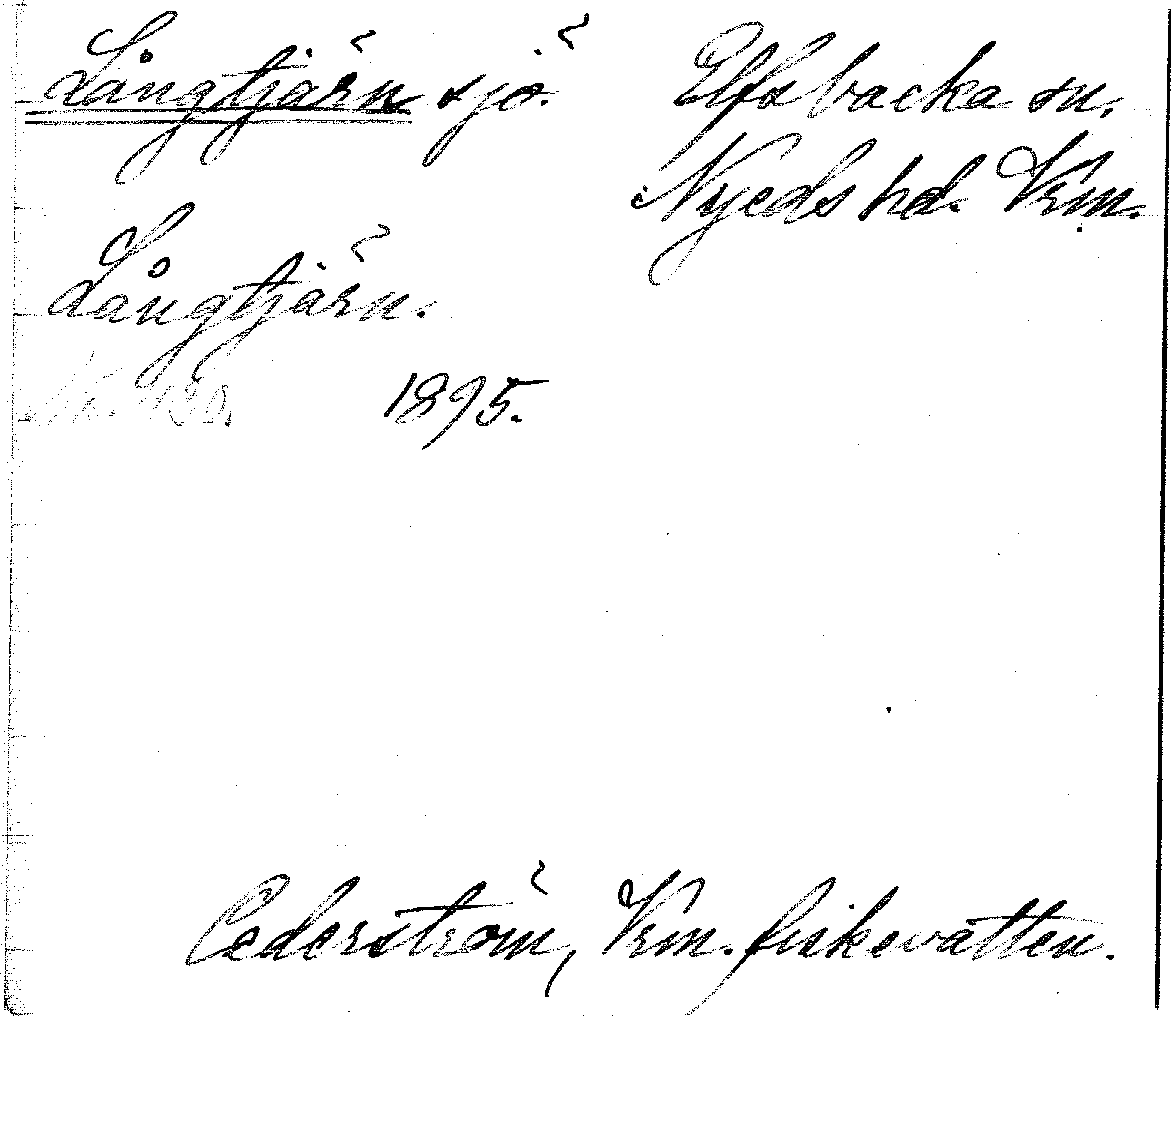 Långtjärn sjö.
Elfsbacka sn.
Nyeds hd. Vrm.
Långtjärn.
1895.
Cederström, Vrm. fiskevatten.